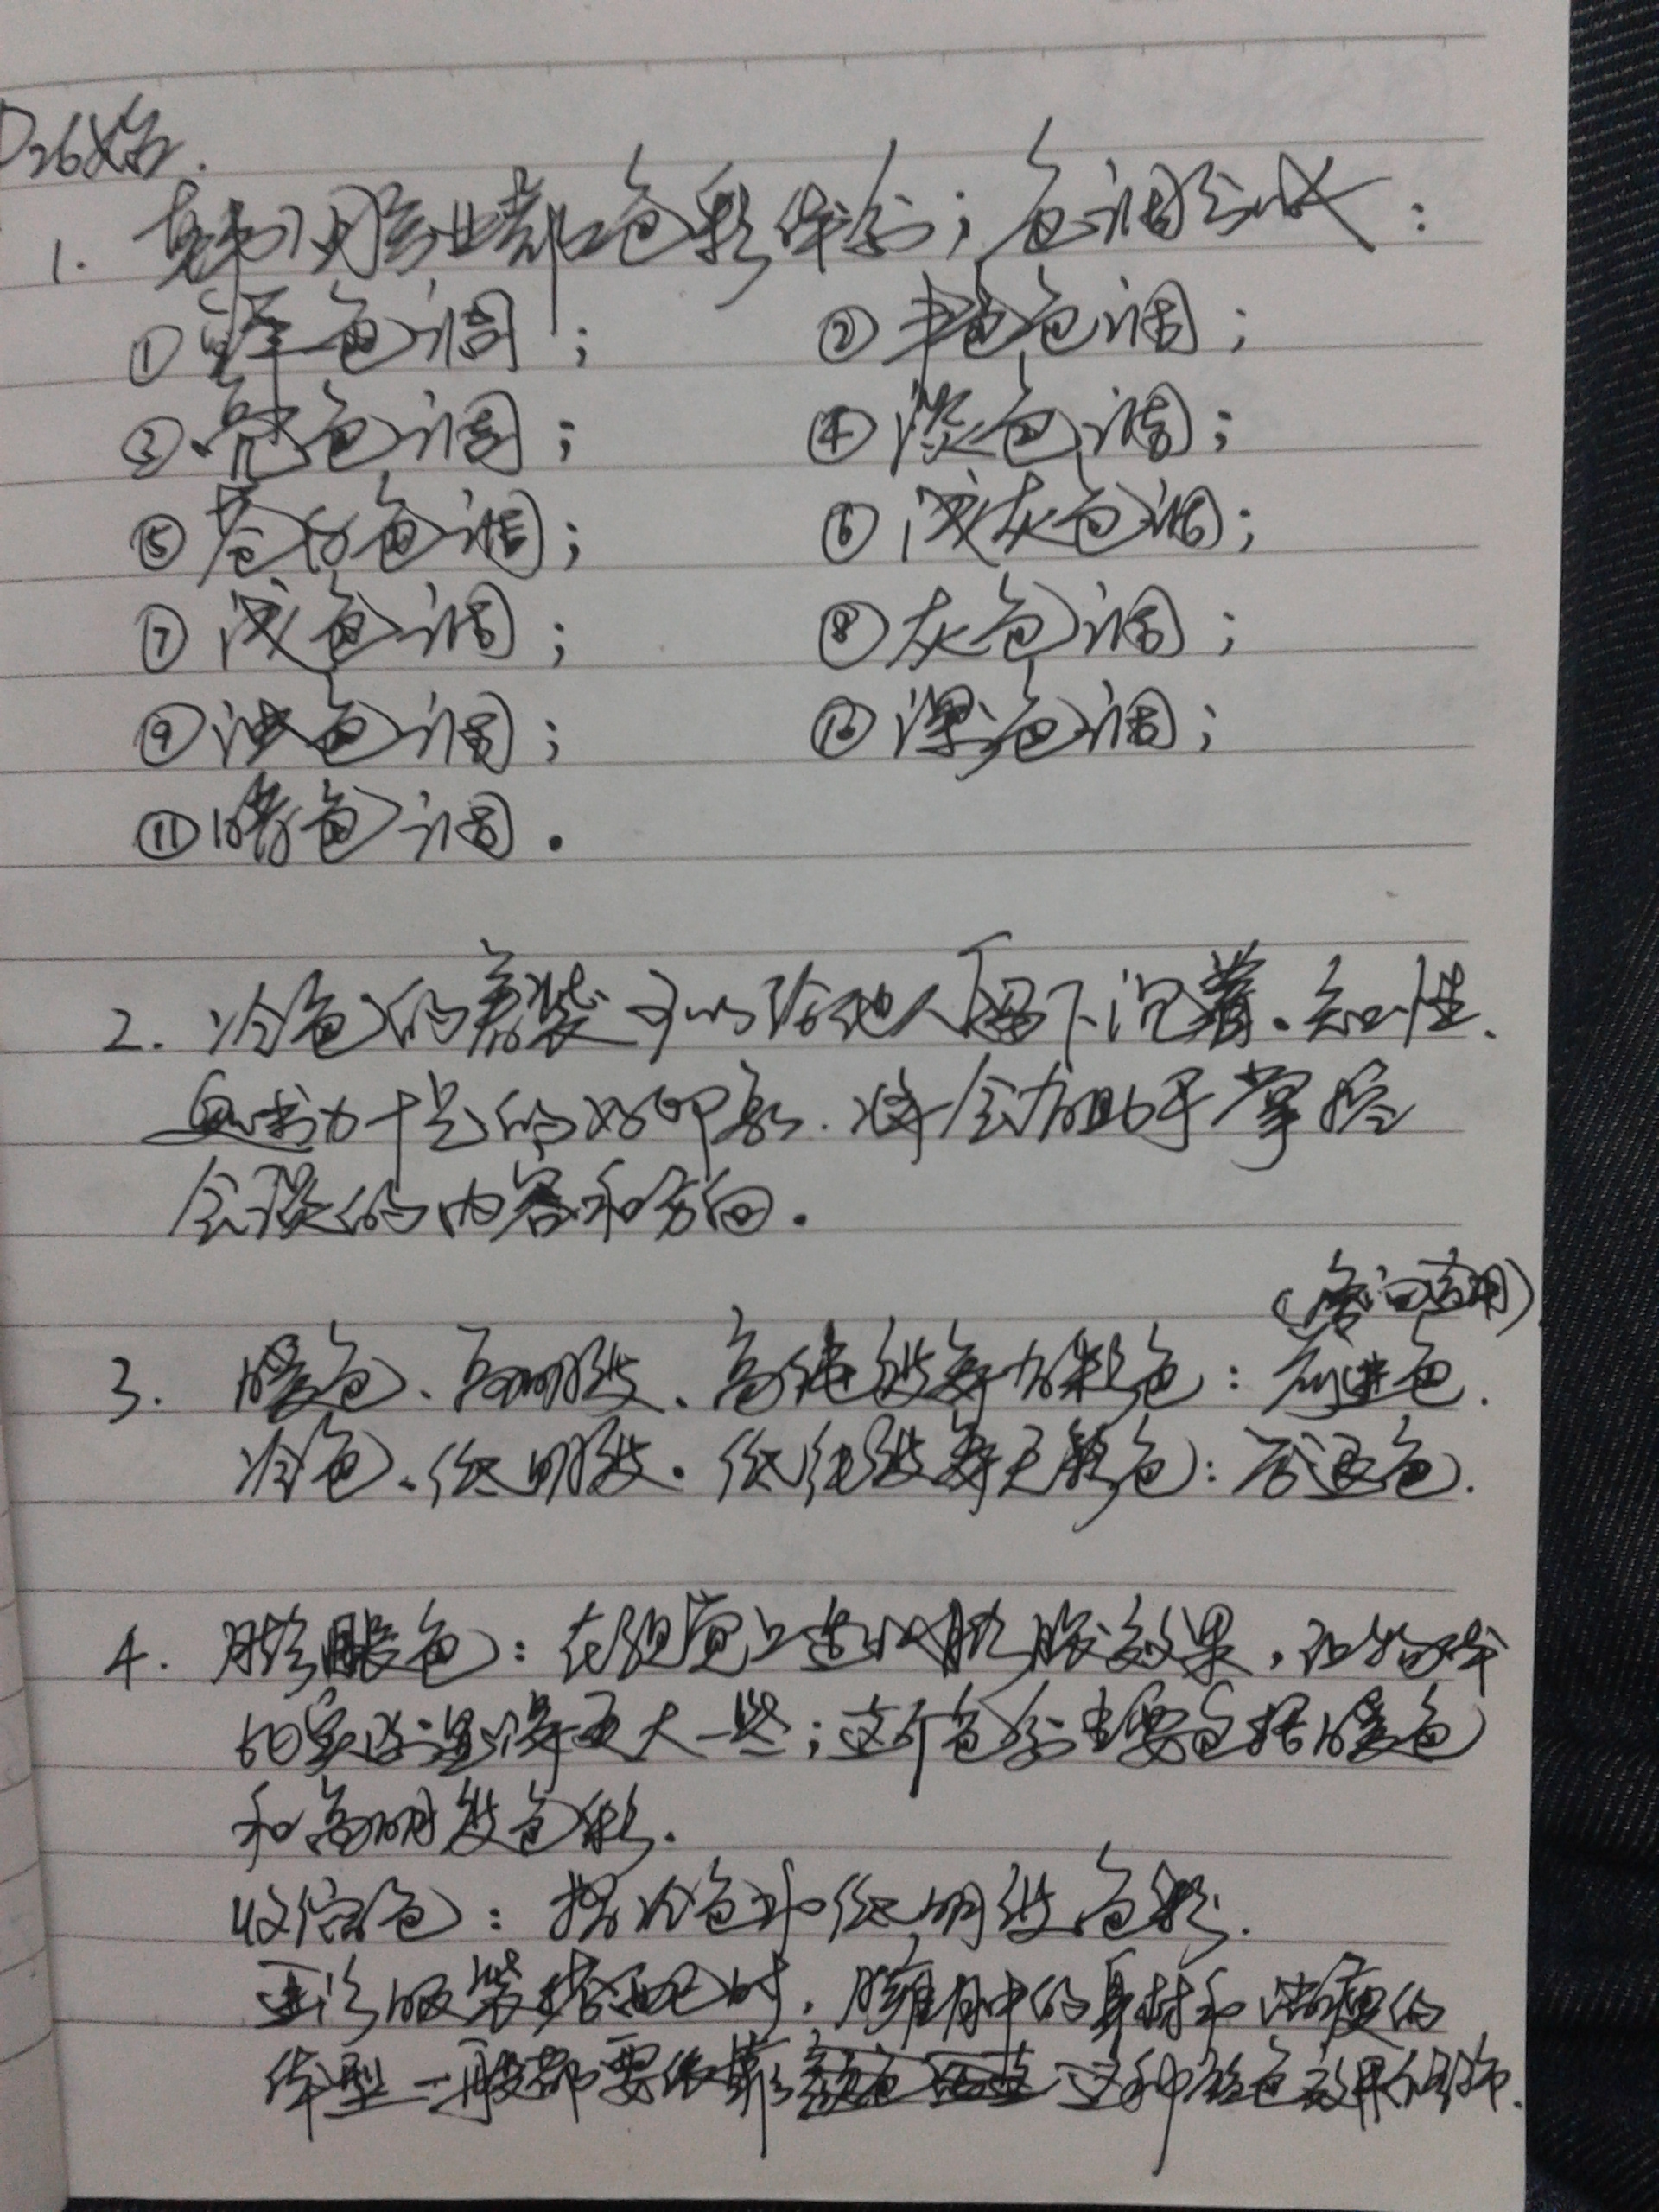 P26始.
1. 专业色彩体系；色调形成：
①鲜色调； ②艳色调；
③亮色调； ④淡色调；
⑤苍白色调； ⑥浅灰色调；
⑦浅色调； ⑧灰色调；
⑨浊色调； ⑩深色调；
⑪暗色调.
2. 冷色的着装可以给他人留下沉着、知性、
魄力十足的好印象.将会有助于掌控
会谈的内容和方向.
(空间适用)
3. 暖色、高明度、高纯度等有彩色：前进色.
冷色、低明度、低纯度等无彩色：后退色.
4. 膨胀色：在视觉上造成膨胀效果，比物体
的实际显得更大一些；这个色系主要包括暖色
和高明度色彩.
收缩色：指冷色和低明度色彩.
进行服装搭配时，臃肿的身材和消瘦的
体型一般都要依靠这种颜色效果修饰.